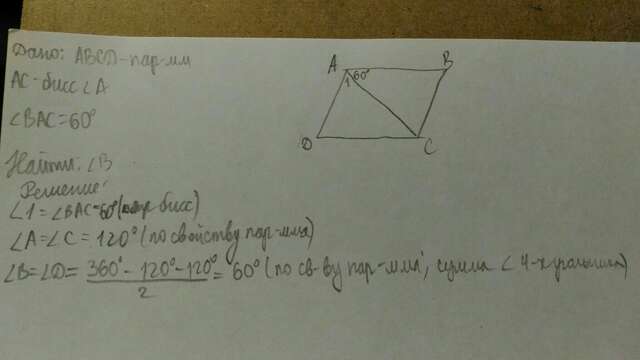 Дано: ABCD-пар-мм
A B
AC-бисс ∠A
1 60°
∠BAC=60°
D C
Найти: ∠B
Решение:
∠1=∠BAC=60° ( бисс)
∠A=∠C=120° (по свойству пар-мма)
∠B=∠D= (360°-120°-120°)/2 = 60° (по св-ву пар-мма, сумма ∠ 4-х угольника)